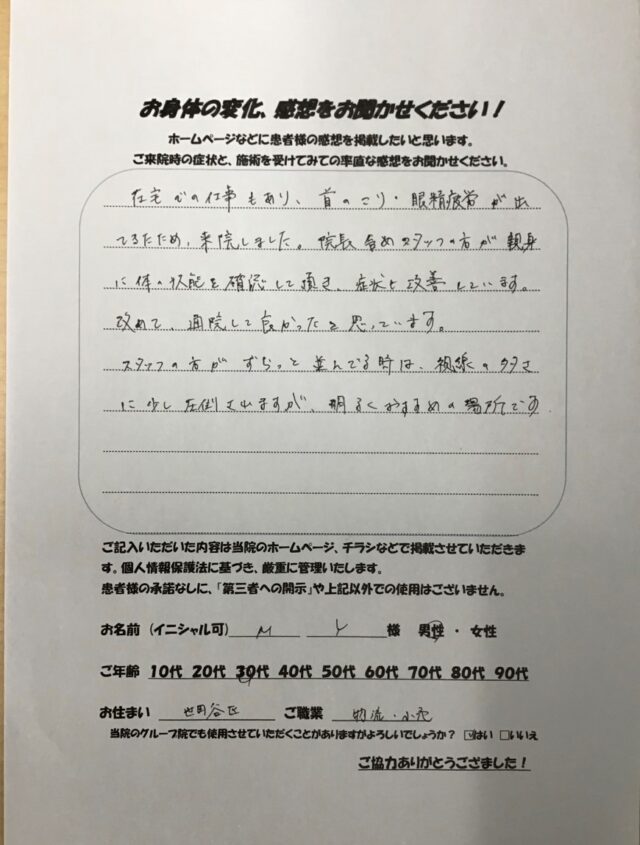 お身体の変化、感想をお聞かせください！
ホームページなどに患者様の感想を掲載したいと思います。
ご来院時の症状と、施術を受けてみての率直な感想をお聞かせください。
在宅での仕事もあり、首のこり・眼精疲労が出
てるため、来院しました。院長含めスタッフの方が親身
に体の状態を確認して頂き、症状も改善しています。
改めて、通院して良かったと思っています。
スタッフの方がずらっと並んでる時は、視線の多さ
に少し圧倒されますが、明るくおすすめの場所です
ご記入いただいた内容は当院のホームページ、チラシなどで掲載させていただきま
す。個人情報保護法に基づき、厳重に管理いたします。
患者様の承諾なしに、「第三者への開示」や上記以外での使用はございません。
お名前（イニシャル可） M Y 様 男性・女性
ご年齢 10代 20代 30代 40代 50代 60代 70代 80代 90代
お住まい 世田谷区 ご職業 物流・小売
当院のグループ院でも使用させていただくことがありますがよろしいでしょうか？ ☑はい □いいえ
ご協力ありがとうござました！